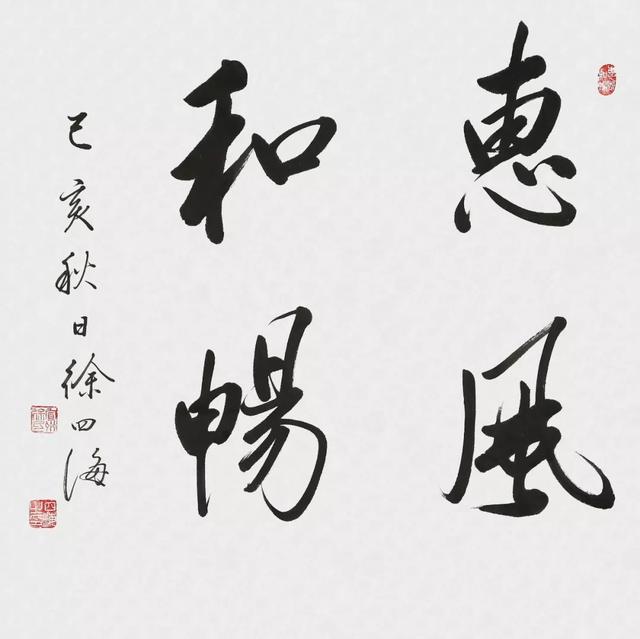 惠風
和暢
己亥秋日徐四海